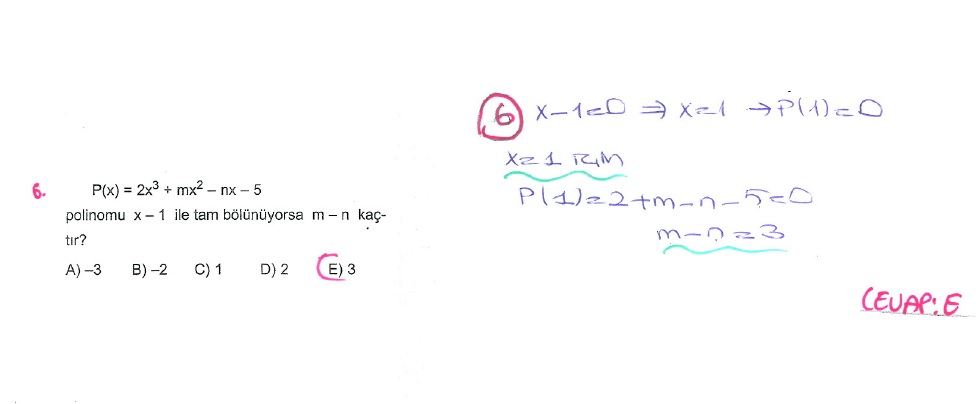 6. P(x) = 2x³ + mx² – nx – 5
polinomu x – 1 ile tam bölünüyorsa m – n kaç-
tır?
A) –3 B) –2 C) 1 D) 2 E) 3
6 x–1=0 ⇒ x=1 → P(1)=0
x=1 için
P(1)=2+m–n–5=0
m–n=3
CEVAP: E